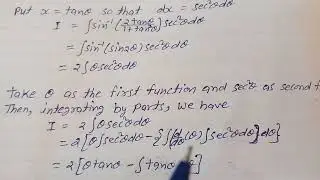 Put x = tanθ so that dx = sec²θdθ
I = ∫sin⁻¹(2tanθ/1+tan²θ)sec²θdθ
= ∫sin⁻¹(sin2θ)sec²θdθ
= 2∫θsec²θdθ
Take θ as the first function and sec²θ as second f
Then, integrating by parts, we have
I = 2∫θsec²θdθ
= 2[θ∫sec²θdθ-∫{d/dθ(θ)∫sec²θdθ}dθ]
= 2[θtanθ - ∫tanθ dθ]